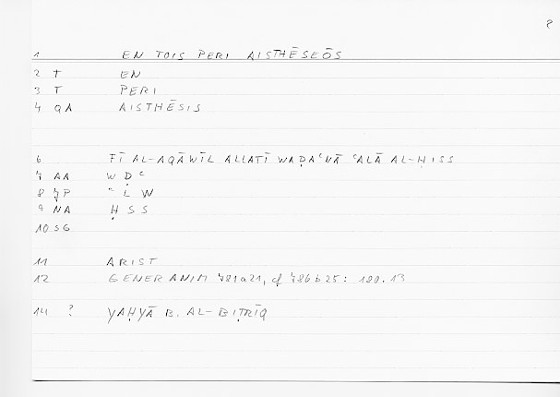 8
1 EN TOIS PERI AISTHĒSEŌS
2 T EN
3 T PERI
4 QA AISTHĒSIS
6 FĪ AL-AQĀWĪL ALLATĪ WAḌAʿNĀ ʿALĀ AL-ḤISS
7 AA W Ḍ ʿ
8 ʿ L W
9 NA Ḥ S S
10 SG
11 ARIST
12 GENER ANIM 781a21, cf 786b25: 180.13
14 ? YAḤYĀ B. AL-BIṬRĪQ